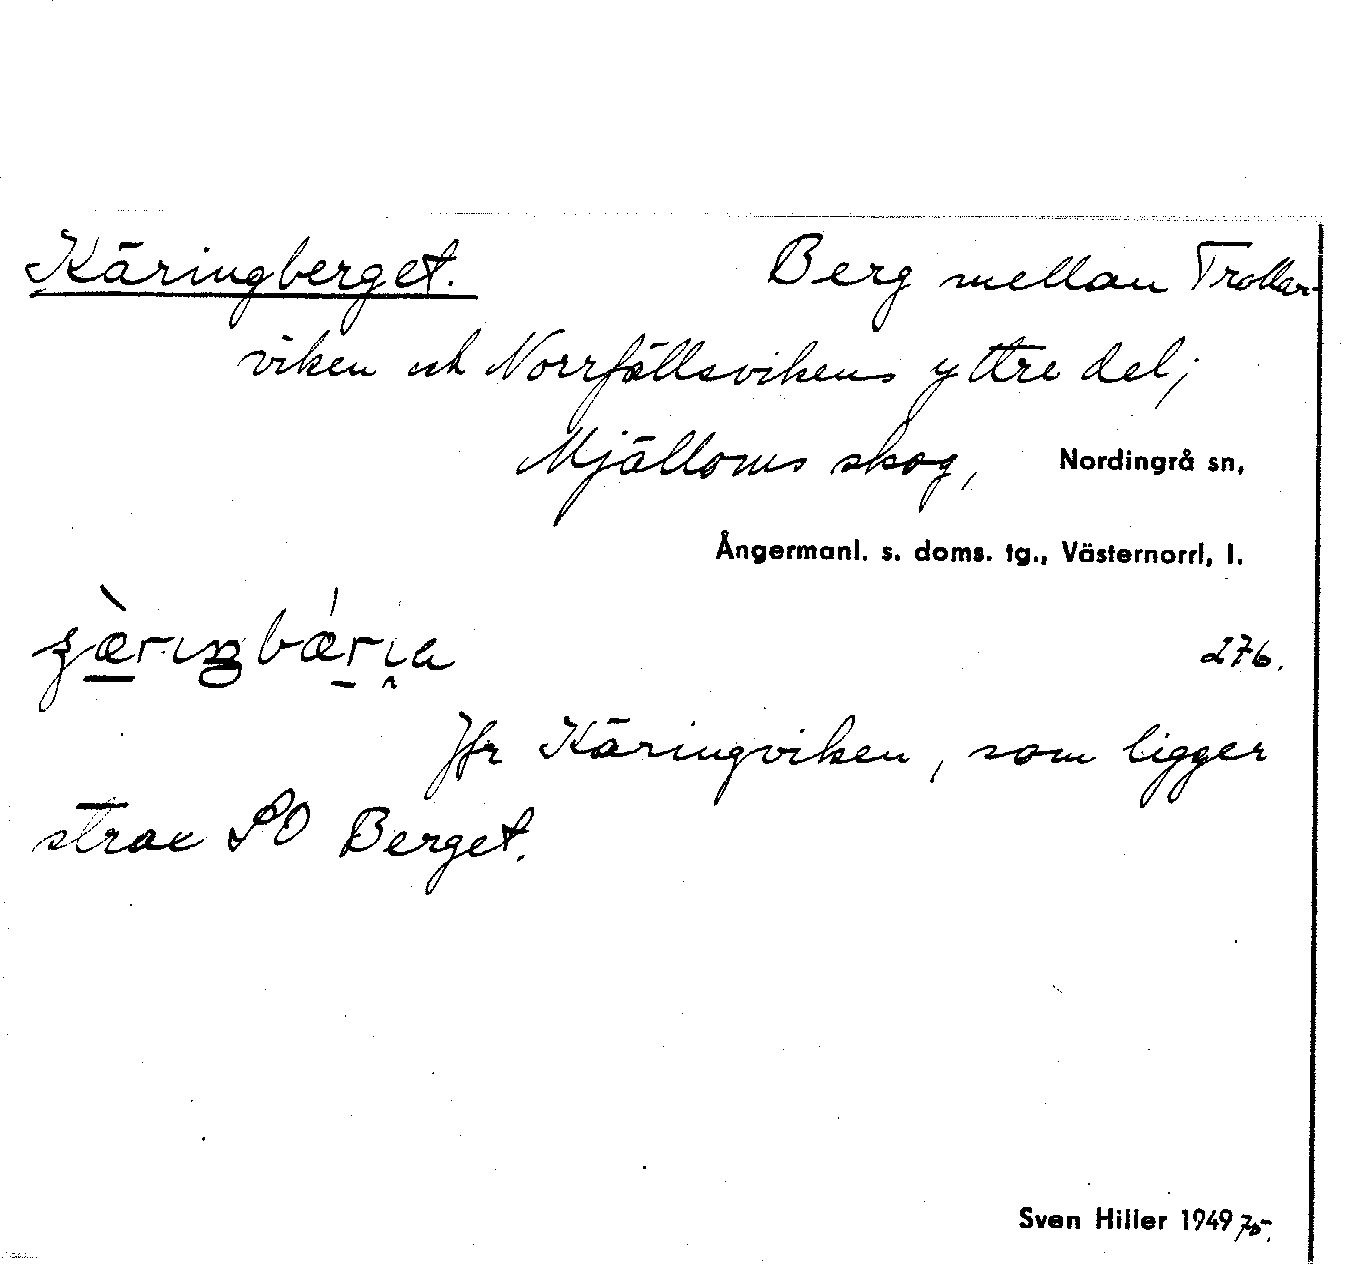 Käringberget. Berg mellan Trollar-
viken och Norrfällsvikens yttre del;
Mjälloms skog, Nordingrå sn,
Ångermanl. s. doms. tg., Västernorrl, l.
276.
Jfr Käringviken, som ligger
strax SO Berget.
Sven Hiller 1949